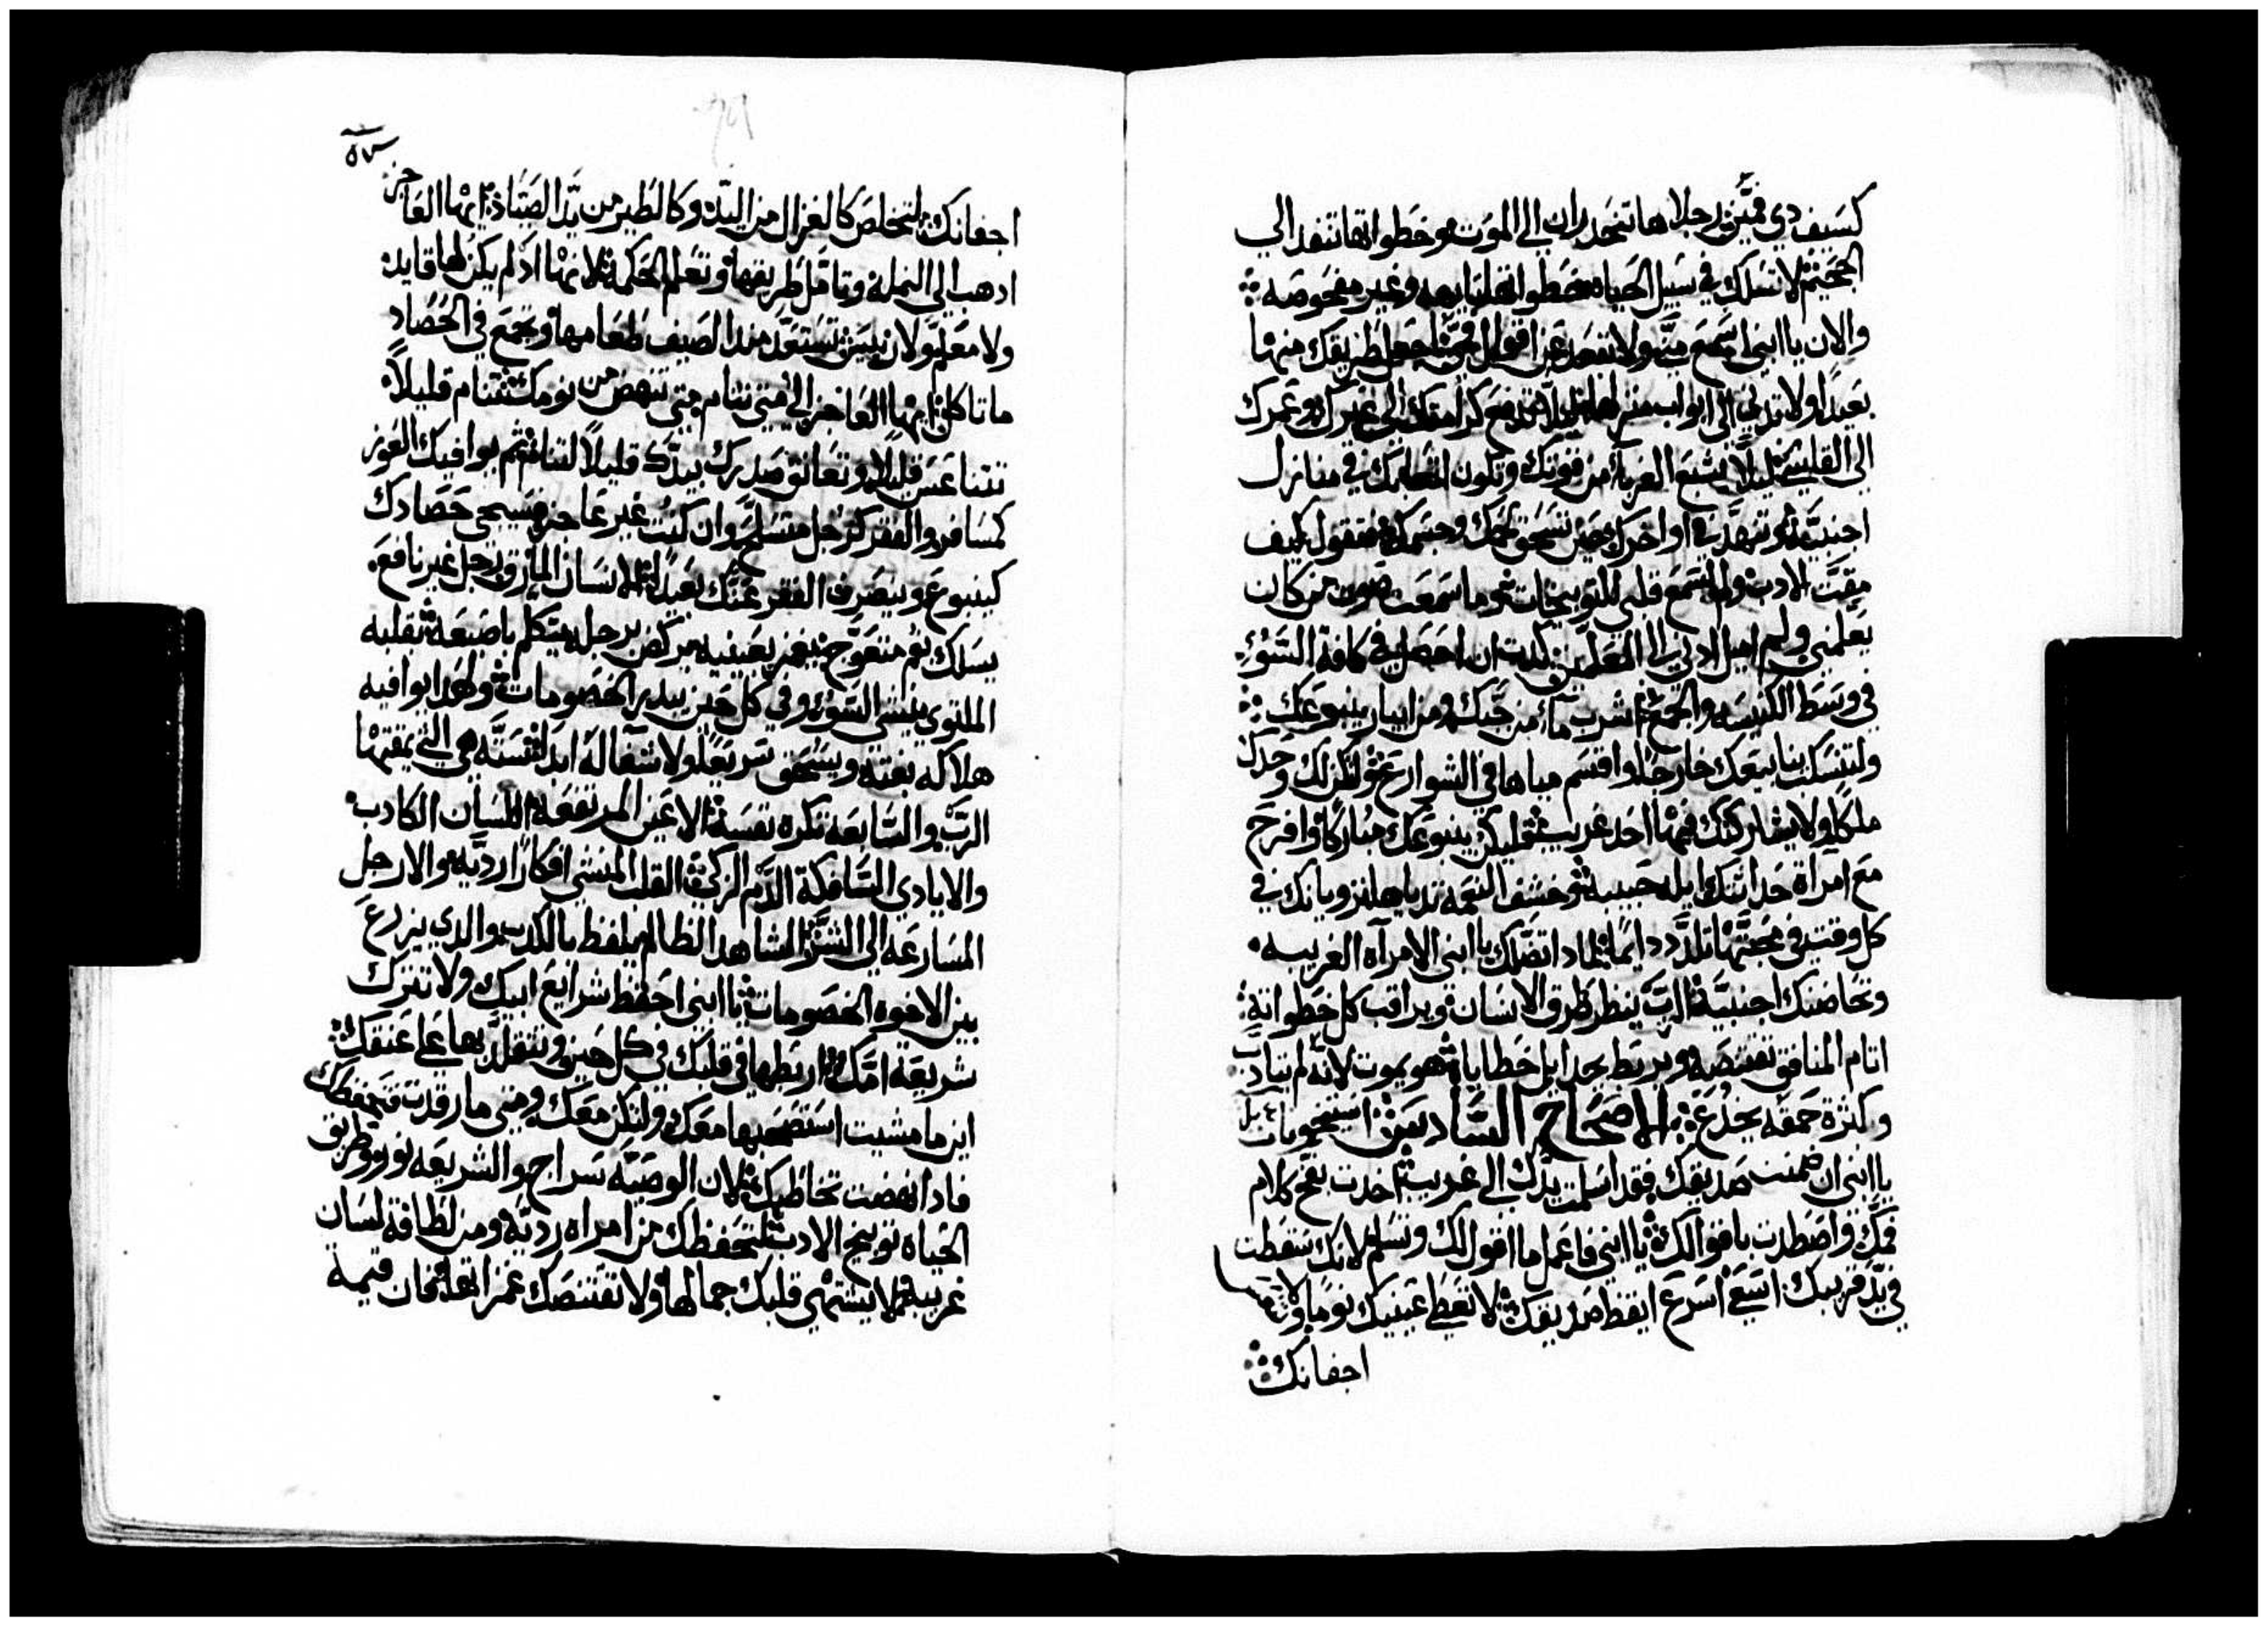 كسيف دي فمين رجلاها تنحدران الي الموت وخطواتها تنفد الي
الجحيم لا تسلك في سبيل الحياه خطواتها تايهه وغير مفحوصه
والان يا ابني اسمع مني ولا تبعد عن اقوال فمي اجعل طريقك منها
بعيدا ولا تدني الي ابواب منزلها ليلا تدفع كرامتك الي غيرك وعمرك
الي القاسي ليلا يشبع الغربا من قوتك وتكون اتعابك في منازل
اجنبيه وتنهد في اواخرك حين تسحق لحمك وجسمك فتقول كيف
مقت الادب ولم يسمع قلبي للتوبيخات وما سمعت صوت من كان
يعلمني ولم اميل ادني الي المعلمين كدت ان احصل في كافة السوء
في وسط الكنيسه والجمع اشرب ما من جبك ومن ابيار ينبوعك
ولتنسكب ينابيعك خارجا واقسم مياها في الشوارع ولتكن لك وحدك
ملكا ولا يشاركك فيها احد غريب فليكن ينبوعك مباركا وافرح
مع امراة حداثتك ايل حبيبه وخشف النعمه تدياها يرويانك في
كل وقت في محبتها تلدد دايما لمادا تضلك يا ابني الامراه الغريبه
وتحاضنك اجنبية الرب ينظر طرق الانسان ويراقب كل خطواته
اتام المنافق تقتنصه ويربط بحبايل خطاياه هو يموت لانه لم يتادب
وكثرة حمقه يخدع الاصحاح السادس
يا ابني ان ضمنت صديقك فقد اسلمت يدك الي غريب اخدت بفخ كلام
فمك واصطدت باقوالك يا ابني فاعمل ما اقول لك وتسلم لانك سقطت
في يد قريبك اسع اسرع ايقظ صديقك لا تعط عينيك نوما ولا تنعس
اجفانك
٥٧
اجفانك لتخلص كالغزال من اليد وكالطير من يد الصياد ايها العاجز
ادهب الي النمله وتامل طريقها وتعلم الحكمة لانها اد لم يكن لها قايد
ولا معلم ولان ييس تستعد مند الصيف طعامها وتجمع في الحصاد
ما تاكل ايها العاجز الي متي تنام متي تنهض من نومك تنام قليلا
تتناعس قليلا وتعانق صدرك بيدك قليلا لتنام ثم يوافيك العوز
كمسافر والفقر كرجل متسلح وان كنت غير عاجز فسيجي حصادك
كينبوع وينصرف الفقر عنك بعيدا الانسان المارق رجل غير نافع
يسلك بفم متعوج يغمز بعينيه يركض برجله يتكلم باصبعه بقلبه
الملتوي ينشي السوء وفي كل حين يبدر الخصومات ولهدا يوافيه
هلاكه بغته ويسحق سريعا ولا شفا له ابدا ستة هي التي يمقتها
الرب والسابعه تكره نفسه الاعين المرتفعه اللسان الكادب
والايادي السافكة الدم الزكي القلب المنشي افكارا رديه والارجل
المسارعه الي الشر الشاهد الظالم يلفظ بالكدب والدي يزرع
بين الاخوه الخصومات يا ابني احفظ شرايع ابيك ولا تترك
شريعة امك اربطها في قلبك في كل حين وتتقلد بها علي عنقك
اين ما مشيت استصحبها معك ولتكن معك ومتي ما رقدت فتحفظك
فادا نهضت تخاطبك لان الوصيه سراج والشريعه نور وطريق
الحياه توبيخ الادب لتحفظك من امراه رديه ومن لطافة لسان
غريبه فلا يشتهي قلبك جمالها ولا تقتنصك غمزاتها فان قيمة